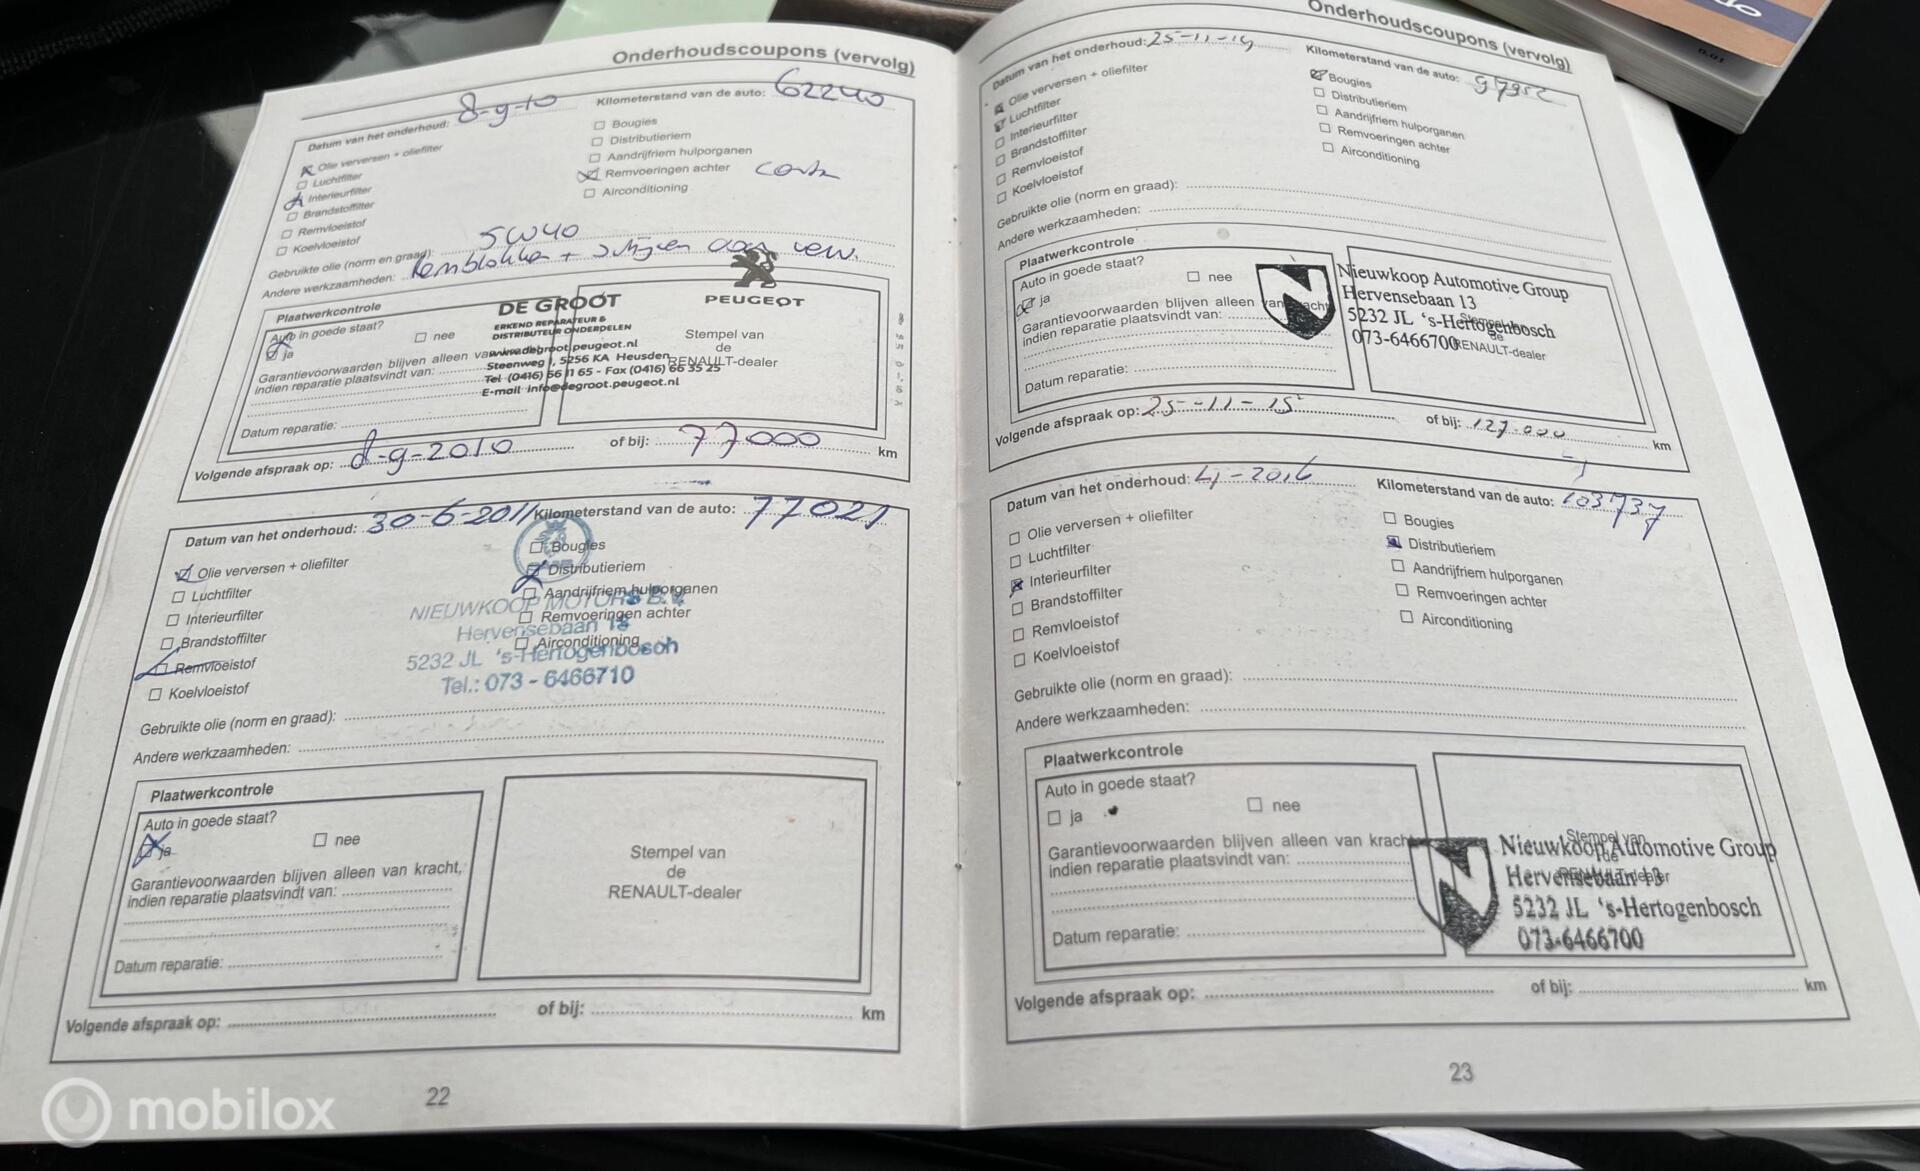 Onderhoudscoupons (vervolg)
Datum van het onderhoud: 8-9-10 Kilometerstand van de auto: 62240
Olie verversen + oliefilter
Luchtfilter
Interieurfilter
Brandstoffilter
Remvloeistof
Koelvloeistof
Bougies
Distributieriem
Aandrijfriem hulporganen
Remvoeringen achter
Airconditioning
Gebruikte olie (norm en graad): 5W40
Andere werkzaamheden: Remblokken + schijven
Plaatwerkcontrole
Auto in goede staat?
ja nee
Garantievoorwaarden blijven alleen van
indien reparatie plaatsvindt van:
Datum reparatie:
DE GROOT
ERKEND REPARATEUR &
DISTRIBUTEUR ONDERDELEN
www.degroot.peugeot.nl
Steenweg 1, 5256 KA Heusden
Tel (0416) 66 11 65 - Fax (0416) 66 35 25
E-mail info@degroot.peugeot.nl
PEUGEOT
Stempel van
de
RENAULT-dealer
Volgende afspraak op: 8-9-2010 of bij: 77000 km
Datum van het onderhoud: 30-6-2011 Kilometerstand van de auto: 77021
Olie verversen + oliefilter
Luchtfilter
Interieurfilter
Brandstoffilter
Remvloeistof
Koelvloeistof
Bougies
Distributieriem
Aandrijfriem hulporganen
Remvoeringen achter
Airconditioning
NIEUWKOOP MOTORS B.V.
Hervensebaan 13
5232 JL 's-Hertogenbosch
Tel.: 073 - 6466710
Gebruikte olie (norm en graad):
Andere werkzaamheden:
Plaatwerkcontrole
Auto in goede staat?
ja nee
Garantievoorwaarden blijven alleen van kracht,
indien reparatie plaatsvindt van:
Datum reparatie:
Stempel van
de
RENAULT-dealer
Volgende afspraak op: of bij: km
22
Onderhoudscoupons (vervolg)
Datum van het onderhoud: 25-11-14 Kilometerstand van de auto: 97952
Olie verversen + oliefilter
Luchtfilter
Interieurfilter
Brandstoffilter
Remvloeistof
Koelvloeistof
Bougies
Distributieriem
Aandrijfriem hulporganen
Remvoeringen achter
Airconditioning
Gebruikte olie (norm en graad):
Andere werkzaamheden:
Plaatwerkcontrole
Auto in goede staat?
ja nee
Garantievoorwaarden blijven alleen van kracht
indien reparatie plaatsvindt van:
Datum reparatie:
Nieuwkoop Automotive Group
Hervensebaan 13
5232 JL 's-Hertogenbosch
073-6466700
Stempel
de
RENAULT-dealer
Volgende afspraak op: 25-11-15 of bij: 127.000 km
Datum van het onderhoud: 4-2016 Kilometerstand van de auto: 103737
Olie verversen + oliefilter
Luchtfilter
Interieurfilter
Brandstoffilter
Remvloeistof
Koelvloeistof
Bougies
Distributieriem
Aandrijfriem hulporganen
Remvoeringen achter
Airconditioning
Gebruikte olie (norm en graad):
Andere werkzaamheden:
Plaatwerkcontrole
Auto in goede staat?
ja nee
Garantievoorwaarden blijven alleen van kracht
indien reparatie plaatsvindt van:
Datum reparatie:
Stempel van
de
RENAULT-dealer
Nieuwkoop Automotive Group
Hervensebaan 13
5232 JL 's-Hertogenbosch
073-6466700
Volgende afspraak op: of bij: km
23
mobilox